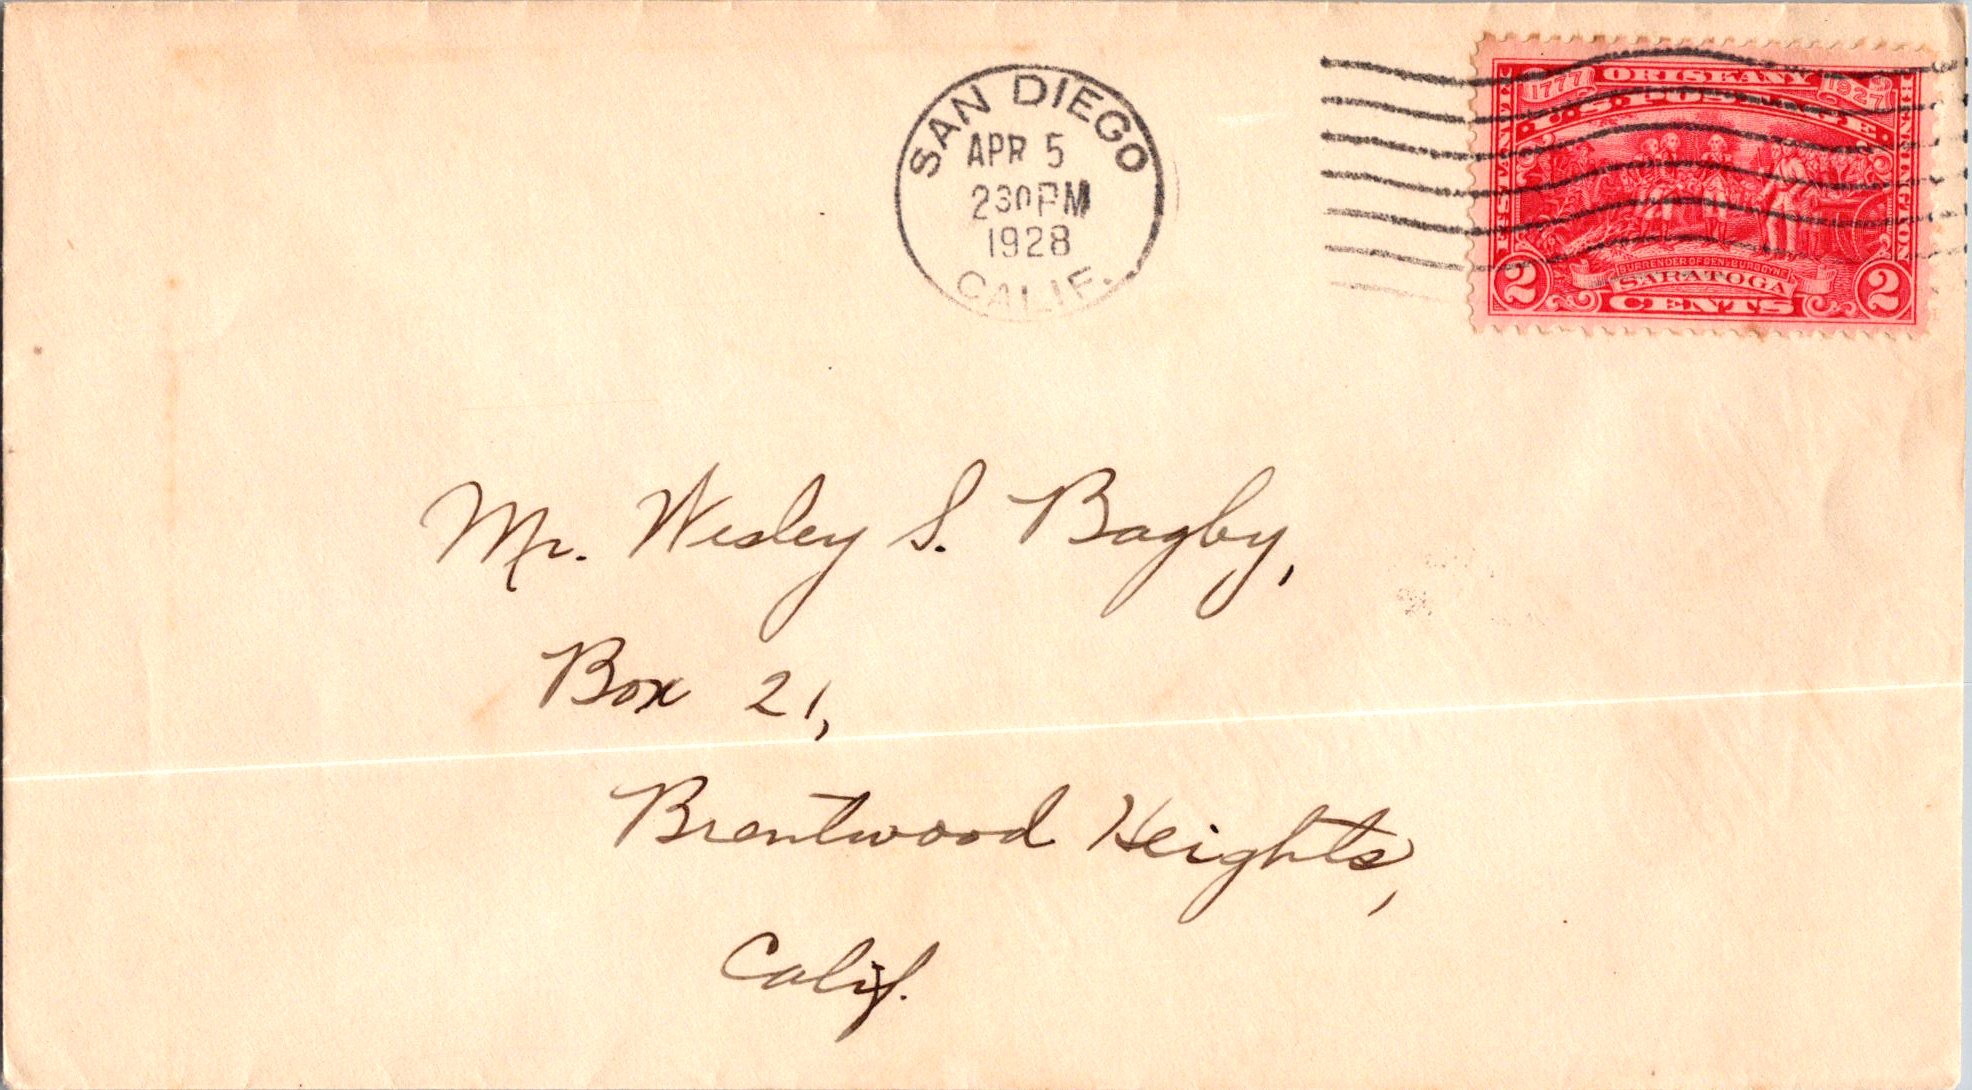 SAN DIEGO
APR 5
230PM
1928
CALIF.
1777 ORISKANY 1927
U.S. POSTAGE
FORT STANWIX
BENNINGTON
SURRENDER OF GEN. BURGOYNE
SARATOGA
2 CENTS 2
Mr. Wesley S. Bagby,
Box 21,
Brentwood Heights,
Calif.